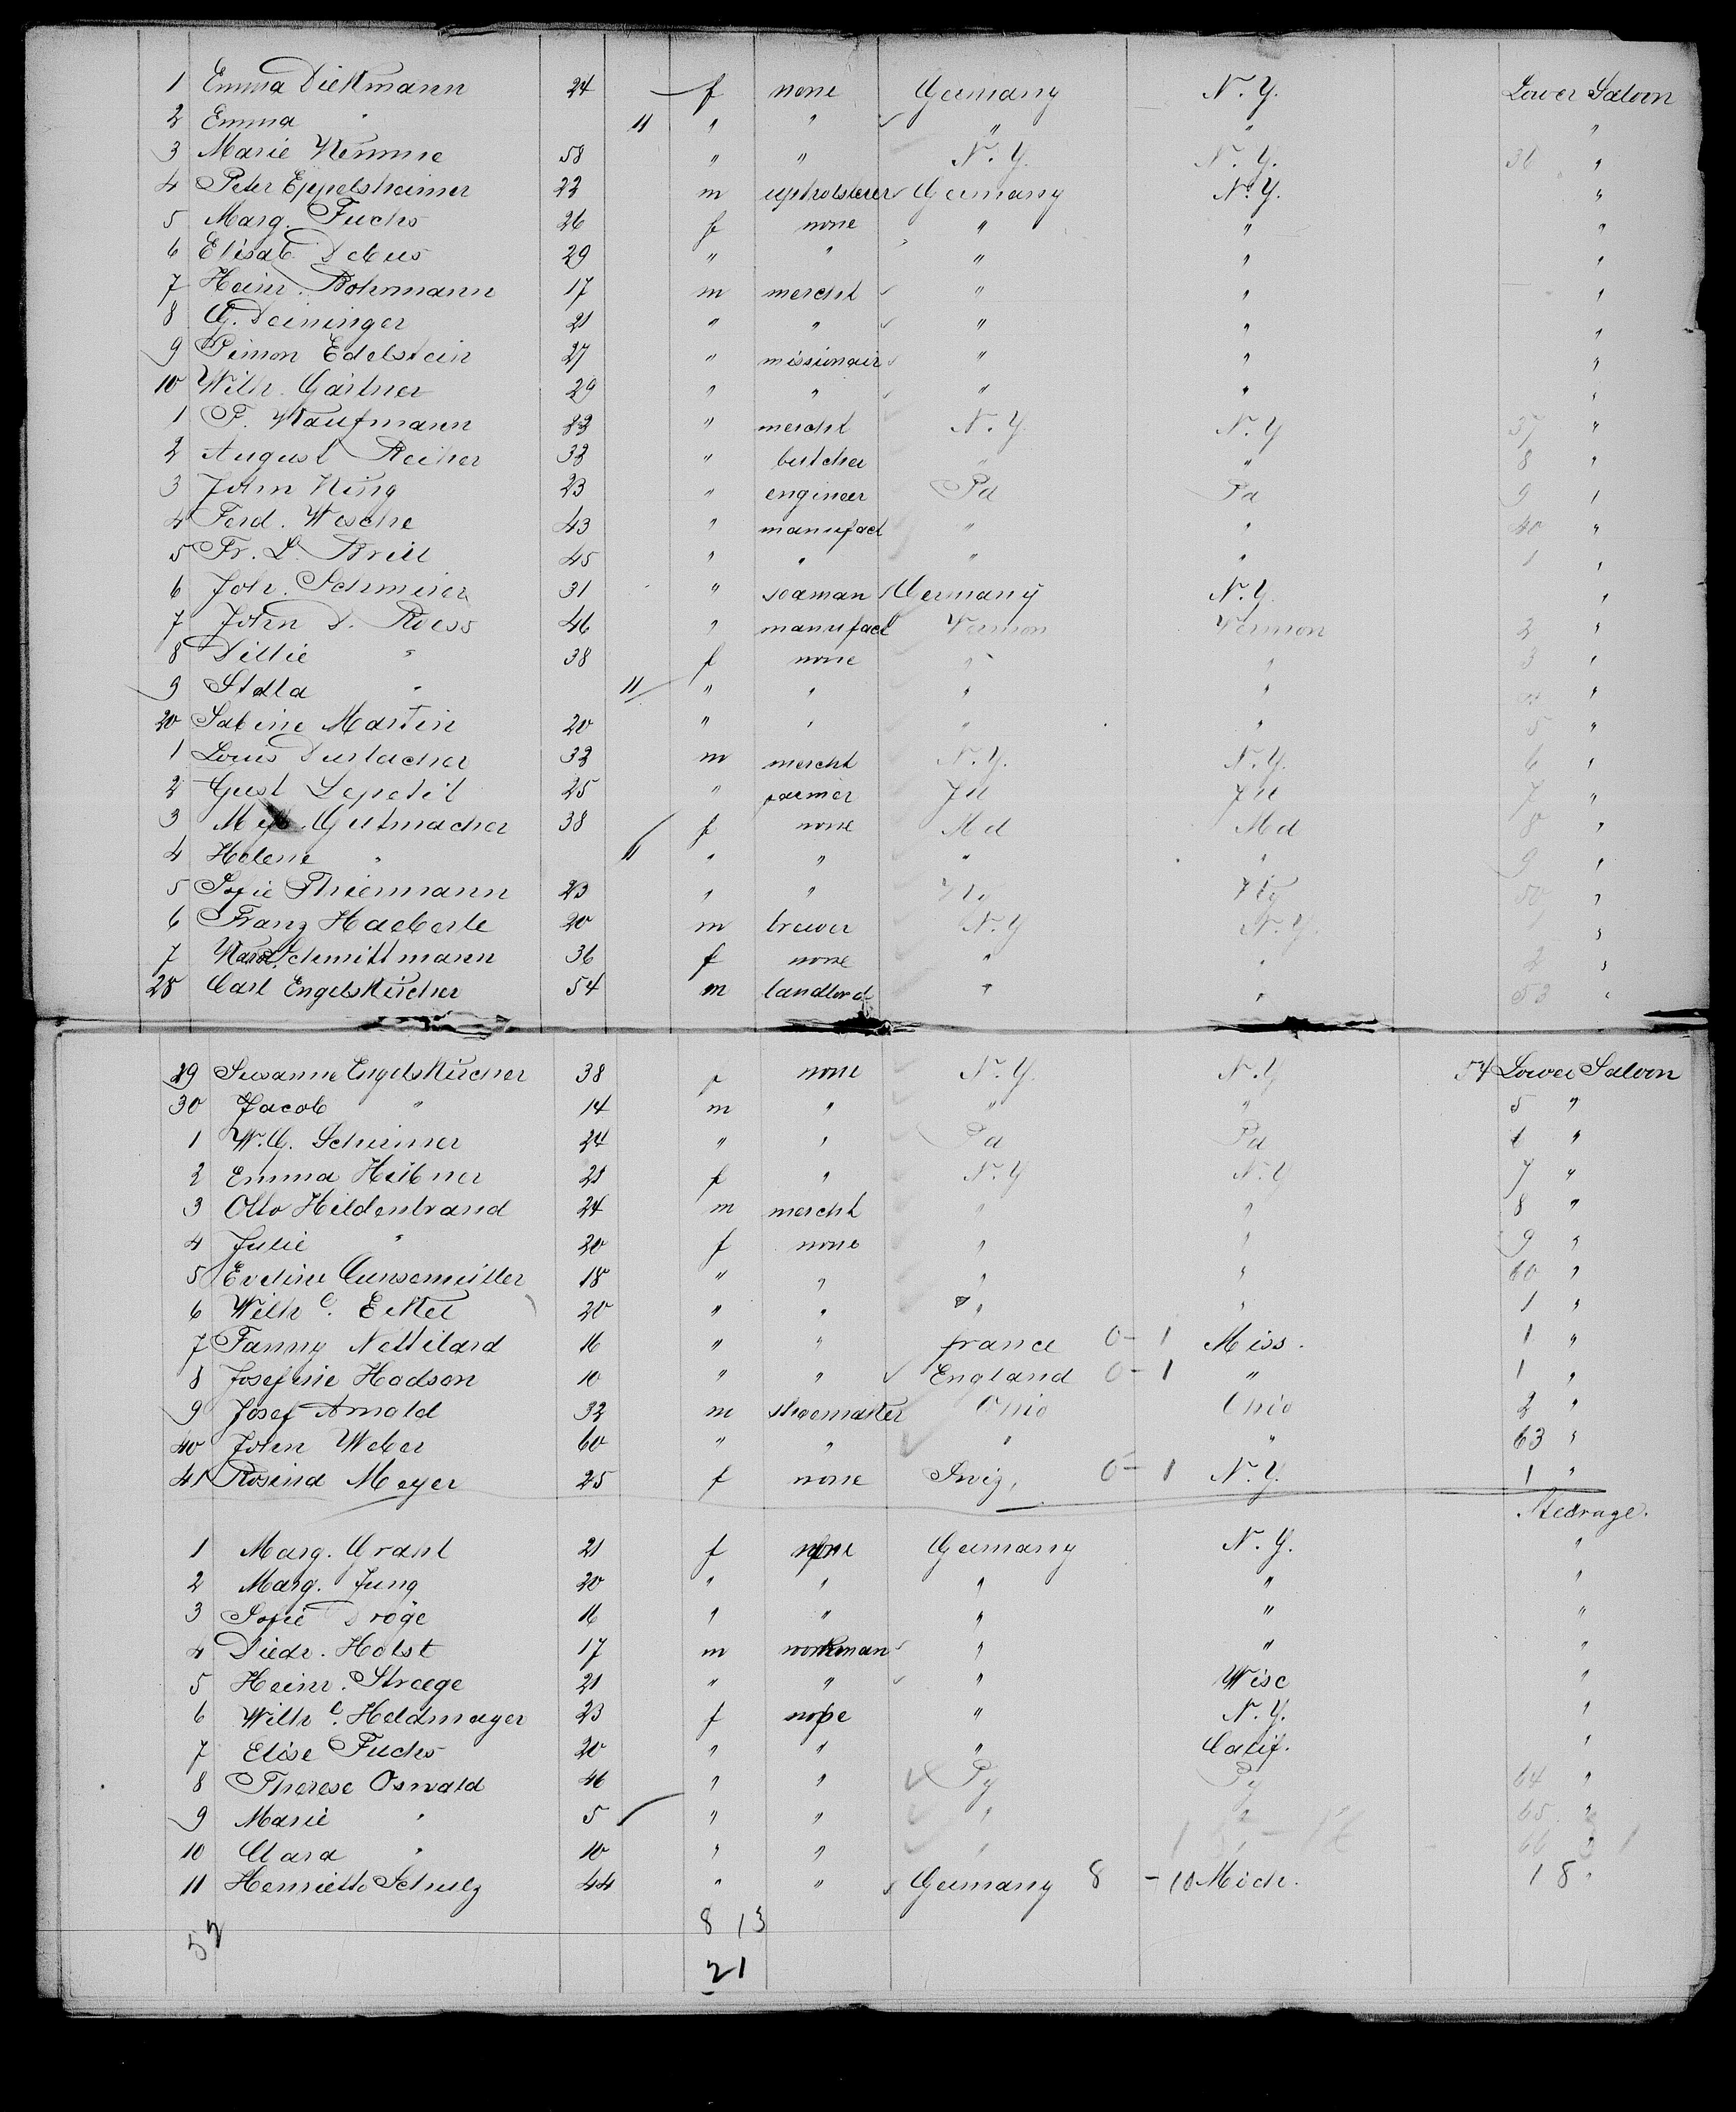 1 Emma Diekmann 24 f none Germany N. Y. Lower Saloon
2 Emma " 11 " " " " "
3 Marie Kemme 58 " " N. Y. N. Y. 36 "
4 Peter Eppelsheimer 22 m upholsterer Germany N. Y. "
5 Marg. Fuchs 26 f none " " "
6 Elisab. Debus 29 " " " " "
7 Heinr. Bohrmann 17 m mercht " " "
8 G. Deininger 21 " " " " "
9 Simon Edelstein 27 " missionair " " "
10 Wilh. Gärtner 29 " " " " "
1 F. Kaufmann 33 " mercht N. Y. N. Y 37 "
2 August Reiher 33 " butcher " " 8 "
3 John King 23 " engineer Pa Pa 9 "
4 Ferd. Wesche 43 " manufact " " 40 "
5 Fr. L. Brill 45 " " " " 1 "
6 Joh. Schmeier 31 " seaman Germany N. Y. "
7 John D. Roess 46 " manufact Vermon Vermon 2 "
8 Dillie " 38 f none " " 3 "
9 Stella " 11 " " " " "
20 Sabine Martin 20 " " " " 5 "
1 Louis Durlacher 33 m mercht N. Y. N. Y. 6 "
2 Gust Lepetit 25 " farmer Ill Ill 7 "
3 Gutmacher 38 f none Md Md 8 "
4 Helene " 11 " " " " 9 "
5 Sofie Thiermann 23 " " Ky Ky 50 "
6 Franz Haeberle 20 m brewer N. Y N. Y. 1 "
7 Schmittmann 36 f none " " 2 "
28 Carl Engelskircher 54 m landlord " " 53 "
29 Susanne Engelskircher 38 f none N. Y. N. Y 54 Lower Saloon
30 Jacob " 14 m " " " 5 "
1 W. G. Schirmer 24 " " Pa Pa 6 "
2 Emma Heibner 21 f " N. Y N. Y 7 "
3 Otto Hildenbrand 24 m mercht " " 8 "
4 Julie " 20 f none " " 9 "
5 Eveline Gunsemüller 18 " " " " 60 "
6 Wilh e. Eckel 20 " " " " 1 "
7 Fanny Nettilard 16 " " france 0 - 1 Miss. 1 "
8 Josefine Hodson 10 " " England 0 - 1 " 1 "
9 Josef Arnold 32 m shoemaker Ohio Ohio 2 "
40 John Weber 60 " " " " 63 "
41 Rosina Meyer 25 f none Swiz. 0 - 1 N. Y. 1 "
Steerage.
1 Marg. Grant 21 f none Germany N. Y. "
2 Marg. Jung 20 " " " " "
3 Sofie Dröge 16 " " " " "
4 Diedr. Holst 17 m workman " " "
5 Heinr. Straege 21 " " " Wisc "
6 Wilh e. Heldmayer 23 f none " N. Y. "
7 Elise Fuchs 20 " " " Calif. "
8 Therese Oswald 46 " " Py Py 64 "
9 Marie " 5 " " " " 65 "
10 Clara " 10 " " " 66 "
11 Henriette Schulz 44 " " Germany 8 - 10 Mich. 1 8 "
52 8 13
21